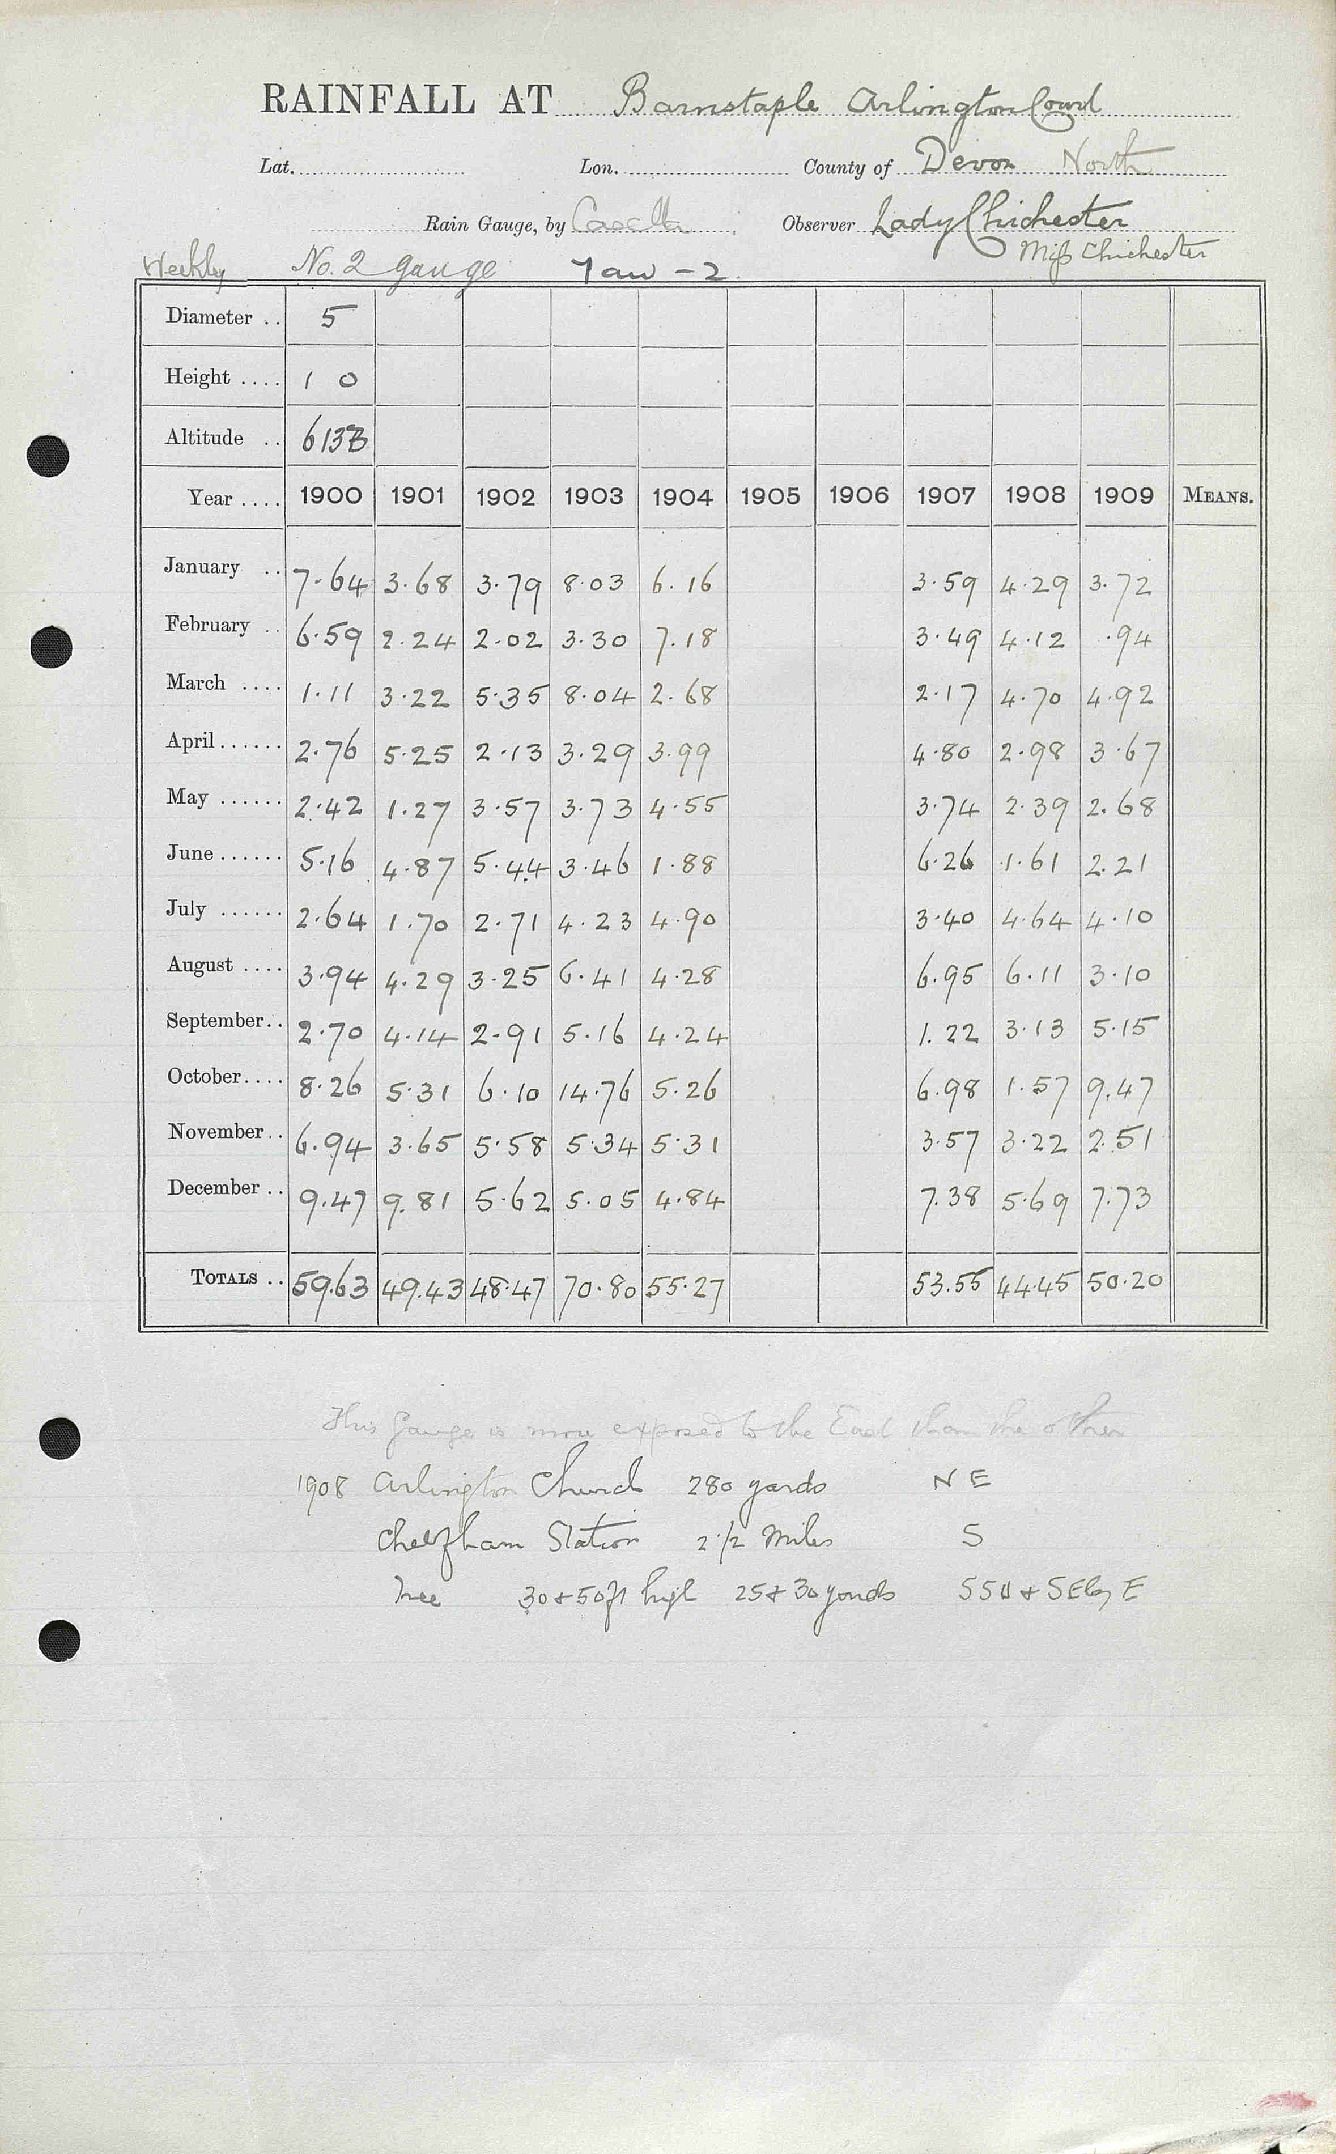 RAINFALL AT Barnstaple Arlington Court
Lat. Lon. County of Devon North
Rain Gauge, by Casella Observer Lady Chichester
Miss Chichester
Weekly No. 2 gauge Taw - 2
Diameter .. 5
Height .... 1 0
Altitude .. 613B
Year .... 1900 1901 1902 1903 1904 1905 1906 1907 1908 1909 MEANS.
January .. 7.64 3.68 3.79 8.03 6.16 3.59 4.29 3.72
February .. 6.59 2.24 2.02 3.30 7.18 3.49 4.12 .94
March .... 1.11 3.22 5.35 8.04 2.68 2.17 4.70 4.92
April ...... 2.76 5.25 2.13 3.29 3.99 4.80 2.98 3.67
May ...... 2.42 1.27 3.57 3.73 4.55 3.74 2.39 2.68
June ...... 5.16 4.87 5.44 3.46 1.88 6.26 1.61 2.21
July ...... 2.64 1.70 2.71 4.23 4.90 3.40 4.64 4.10
August .... 3.94 4.29 3.25 6.41 4.28 6.95 6.11 3.10
September.. 2.70 4.14 2.91 5.16 4.24 1.22 3.13 5.15
October.... 8.26 5.31 6.10 14.76 5.26 6.98 1.57 9.47
November.. 6.94 3.65 5.58 5.34 5.31 3.57 3.22 2.51
December .. 9.47 9.81 5.62 5.05 4.84 7.38 5.69 7.73
TOTALS .. 59.63 49.43 48.47 70.80 55.27 53.55 44.45 50.20
This Gauge is more exposed to the East than the other
1908 Arlington Church 280 yards N E
Chelfham Station 2 1/2 Miles S
Tree 30 & 50 ft high 25 & 30 yards SSW & SE by E